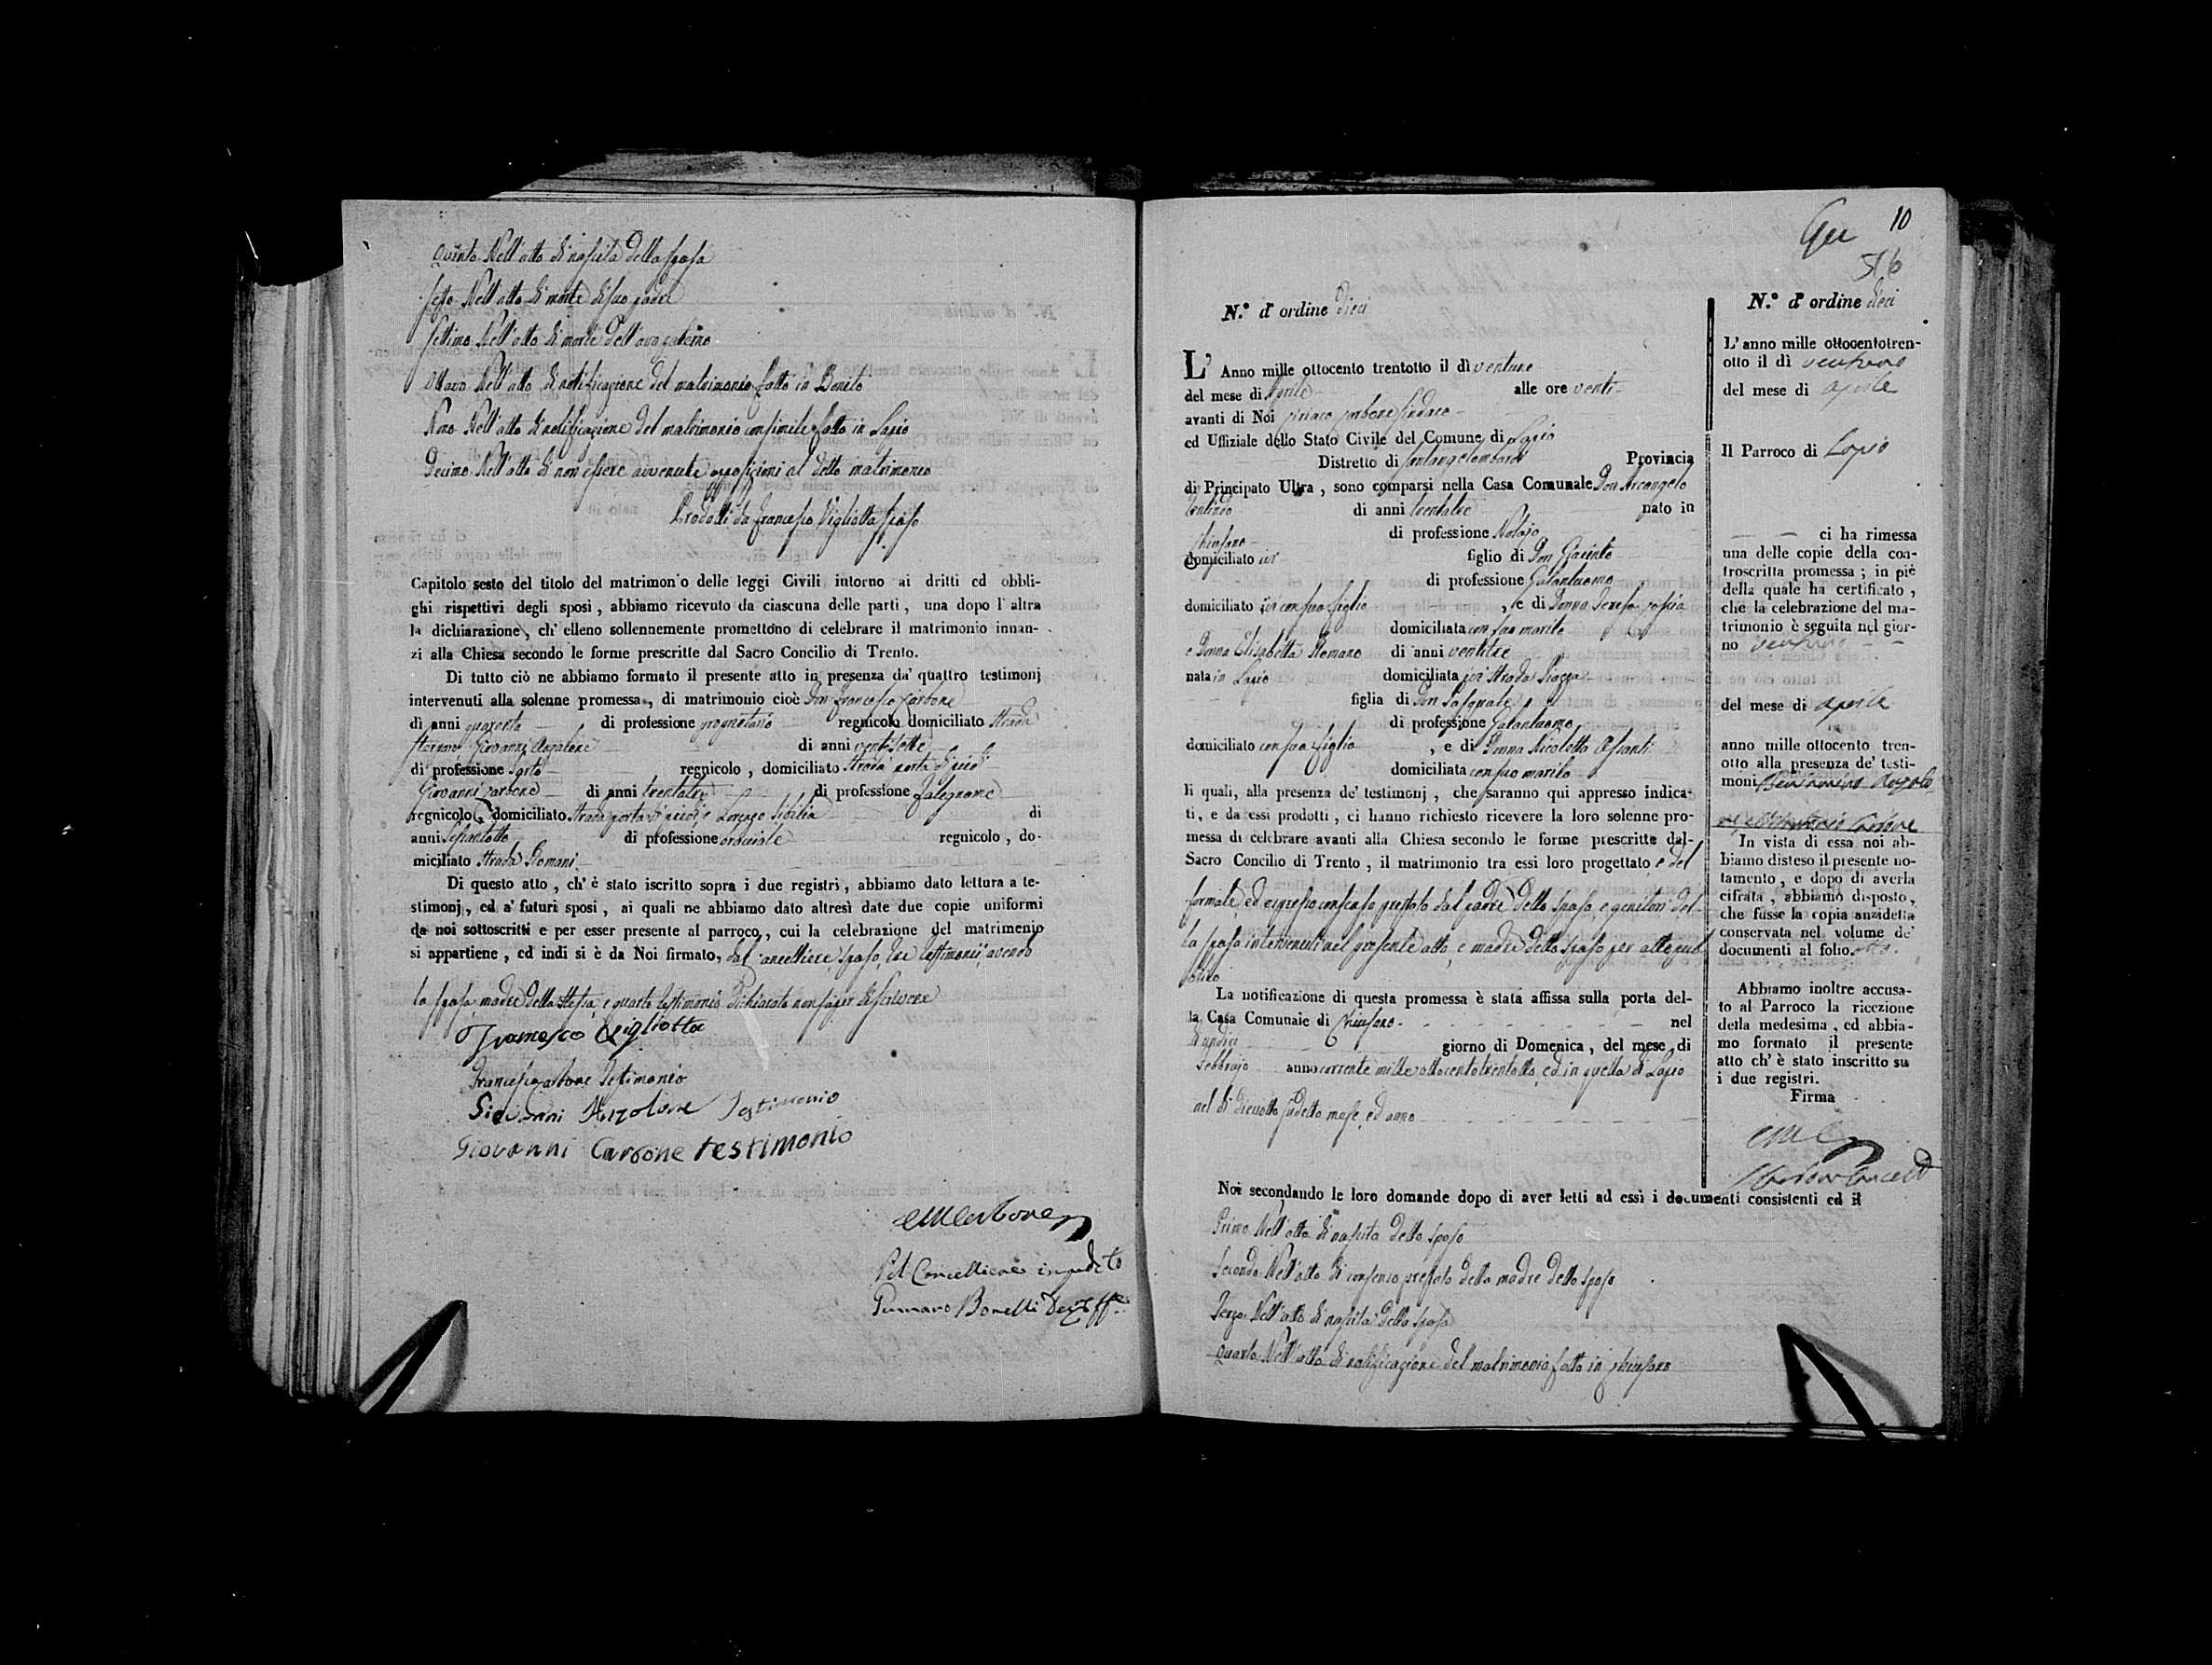 Quinto Nell'atto di nascita della sposa
Sesto Nell'atto di morte di suo padre
Settimo Nell'atto di morte dell'avo paterno
Ottavo Nell'atto di notificazione del matrimonio fatto in Bonito
Nono Nell'atto di notificazione del matrimonio consimile fatto in Lapio
Decimo Nell'atto di non essere avvenute opposizioni al detto matrimonio
Prodotti da Francesco Vigliotta sposo
Capitolo sesto del titolo del matrimonio delle leggi Civili intorno ai dritti ed obbli-
ghi rispettivi degli sposi, abbiamo ricevuto da ciascuna delle parti, una dopo l'altra
la dichiarazione, ch'elleno sollennemente promettono di celebrare il matrimonio innan-
zi alla Chiesa secondo le forme prescritte dal Sacro Concilio di Trento.
Di tutto ciò ne abbiamo formato il presente atto in presenza da' quattro testimonj
intervenuti alla solenne promessa, di matrimonio cioè Don Francesco Carbone
di anni quaranta di professione proprietario regnicolo domiciliato Strada
Giovanni Anzalone di anni ventisette
di professione Sarto regnicolo, domiciliato Strada porta di
Giovanni Carbone di anni trentatre di professione Falegname
regnicolo, domiciliato Strada porta di Lorenzo Sibilia di
anni di professione regnicolo, do-
miciliato Strada Romani
Di questo atto, ch'è stato iscritto sopra i due registri, abbiamo dato lettura a te-
stimonj, ed a' futuri sposi, ai quali ne abbiamo dato altresì date due copie uniformi
da noi sottoscritti e per esser presente al parroco, cui la celebrazione del matrimenio
si appartiene, ed indi si è da Noi firmato, dal Cancelliere sposo, tre testimonii, avendo
la sposa, madre della stessa, e quarto testimonio dichiarato non saper di scrivere
Francesco Vigliotta
Francesco Carbone Testimonio
Giovanni Anzalone Testimonio
Giovanni Carbone testimonio
Carbone
Pel Cancelliere impedito
Bonelli
10
N.° d'ordine dieci
L'Anno mille ottocento trentotto il dì ventuno
del mese di Aprile alle ore venti
avanti di Noi Ciriaco Carbone Sindaco
ed Uffiziale dello Stato Civile del Comune di Lapio
Distretto di Santangelombardi Provincia
di Principato Ultra, sono comparsi nella Casa Comunale Don Arcangelo
di anni trentatre nato in
Chiusano di professione Notajo
domiciliato ivi figlio di Don Giacinto
di professione Galantuomo
domiciliato ivi con suo figlio, e di Donna Teresa
domiciliata con suo marito
e Donna Elisabetta Romano di anni ventitre
nata in Lapio domiciliata ivi Strada Piazza
figlia di Don Pasquale
di professione Galantuomo
domiciliato con sua figlia, e di Donna Nicoletta
domiciliata con suo marito
li quali, alla presenza de' testimonj, che saranno qui appresso indica-
ti, e da essi prodotti, ci hanno richiesto ricevere la loro solenne pro-
messa di celebrare avanti alla Chiesa secondo le forme prescritte dal-
Sacro Concilio di Trento, il matrimonio tra essi loro progettato, e del
formale, ed espresso consenso prestato dal padre dello sposo, e genitori del-
la sposa intervenuti nel presente atto, e madre dello sposo per atto pub-
blico
La notificazione di questa promessa è stata affissa sulla porta del-
la Casa Comunale di Chiusano nel
dì undici giorno di Domenica, del mese di
Febbrajo anno corrente mille ottocento trentotto, ed in quella di Lapio
nel dì diciotto sudetto mese, ed anno
Noi secondando le loro domande dopo di aver letti ad essi i documenti consistenti ed il
Primo Nell'atto di nascita dello sposo
Secondo Nell'atto di consenso prestato della madre dello sposo
Terzo Nell'atto di nascita della sposa
Quarto Nell'atto di notificazione del matrimonio fatto in Chiusano
N.° d'ordine dieci
L'anno mille ottocentotren-
otto il dì ventuno
del mese di aprile
Il Parroco di Lapio
ci ha rimessa
una delle copie della con-
troscritta promessa; in piè
della quale ha certificato,
che la celebrazione del ma-
trimonio è seguita nel gior-
no ventuno
del mese di aprile
anno mille ottocento tren-
otto alla presenza de' testi-
moni
Carbone
In vista di essa noi ab-
biamo disteso il presente no-
tamento, e dopo di averla
cifrata, abbiamo disposto,
che fusse la copia anzidetta
conservata nel volume de'
documenti al folio
Abbiamo inoltre accusa-
to al Parroco la ricezione
della medesima, ed abbia-
mo formato il presente
atto ch'è stato inscritto su
i due registri.
Firma